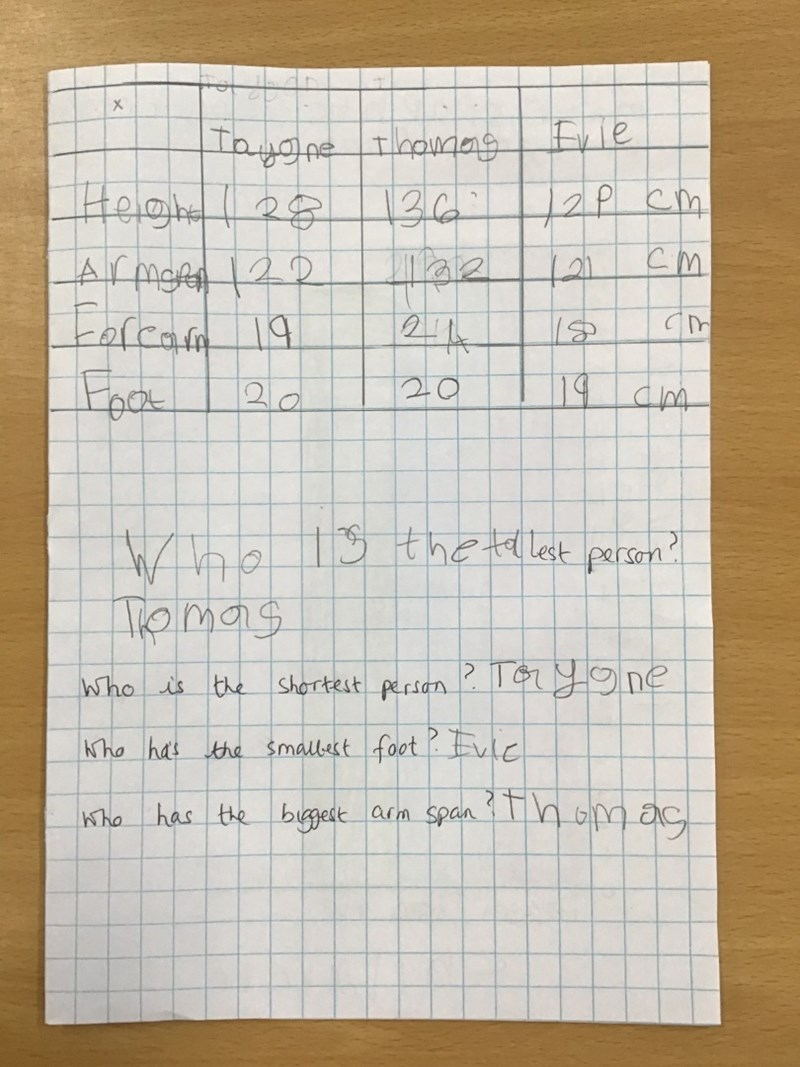 x
Tayone Thomas Evie
Height 128 136 12P cm
Armspan 122 132 121 cm
Forearm 19 24 18 cm
Foot 20 20 19 cm
Who Is the tallest person?
Tomas
Who is the shortest person? Tayone
Who has the smallest foot? Evie
Who has the biggest arm span? Thomas